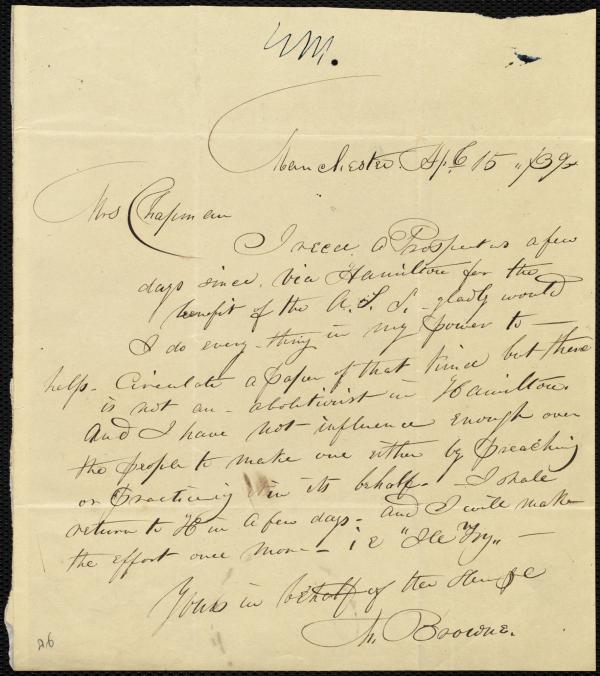 Manchester. Apl 15 "/39
Mrs Chapman
I recd a Prospectus a few
days since. via Hamilton for the
benefit of the A. S. S. - gladly would
I do every-thing in my power to -
help - Circulate a paper of that kind but there
is not an - abolitionist in Hamilton.
And I have not influence enough over
the people to make one either by preaching
or practicing in its behalf. - I shall
return to H in a few days - and I will make
the effort once more - i e "Ile Try" -
Yours in behalf of the
Browne.
26